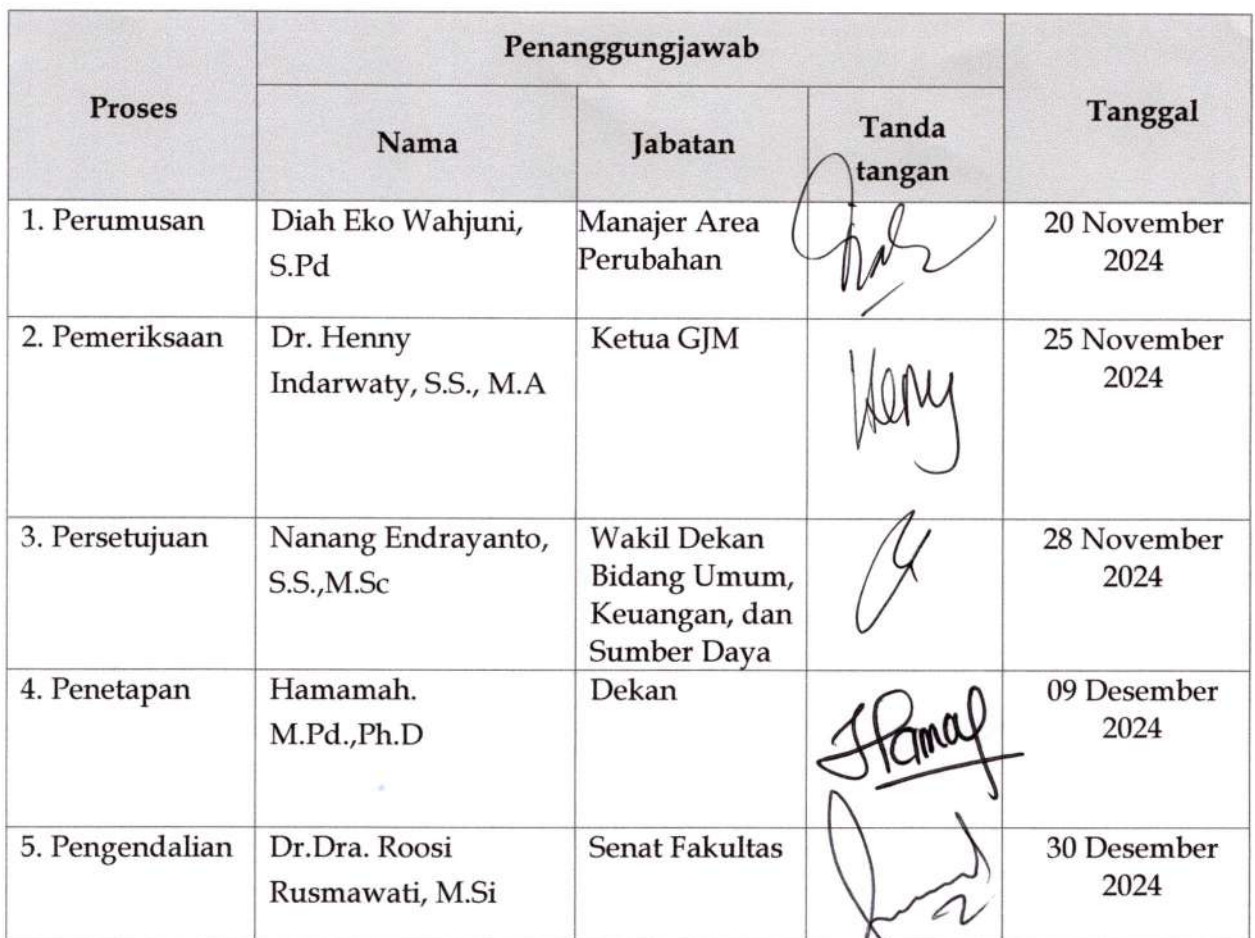 Penanggungjawab
Proses
Tanggal
Nama
Jabatan
Tanda
tangan
1. Perumusan
Diah Eko Wahjuni,
S.Pd
Manajer Area
Perubahan
20 November
2024
2. Pemeriksaan
Dr. Henny
Indarwaty, S.S., M.A
Ketua GJM
25 November
2024
3. Persetujuan
Nanang Endrayanto,
S.S.,M.Sc
Wakil Dekan
Bidang Umum,
Keuangan, dan
Sumber Daya
28 November
2024
4. Penetapan
Hamamah.
M.Pd.,Ph.D
Dekan
09 Desember
2024
5. Pengendalian
Dr.Dra. Roosi
Rusmawati, M.Si
Senat Fakultas
30 Desember
2024